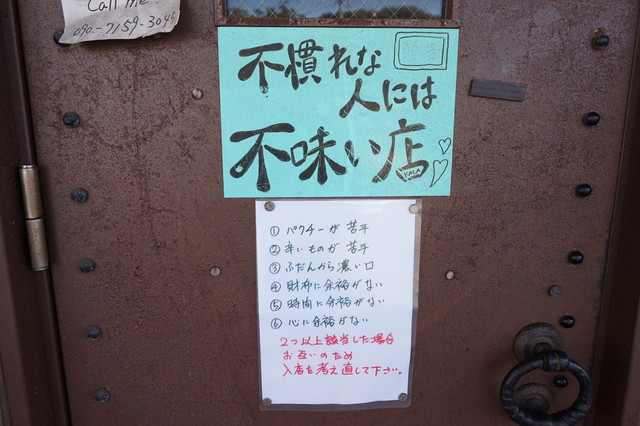 Call me
090-7159-3045
不慣れな
人には
不味い店
KALA
① パクチーが苦手
② 辛いものが苦手
③ ふだんから濃い口
④ 財布に余裕がない
⑤ 時間に余裕がない
⑥ 心に余裕がない
2つ以上該当した場合
お互いのため
入店を考え直して下さい。